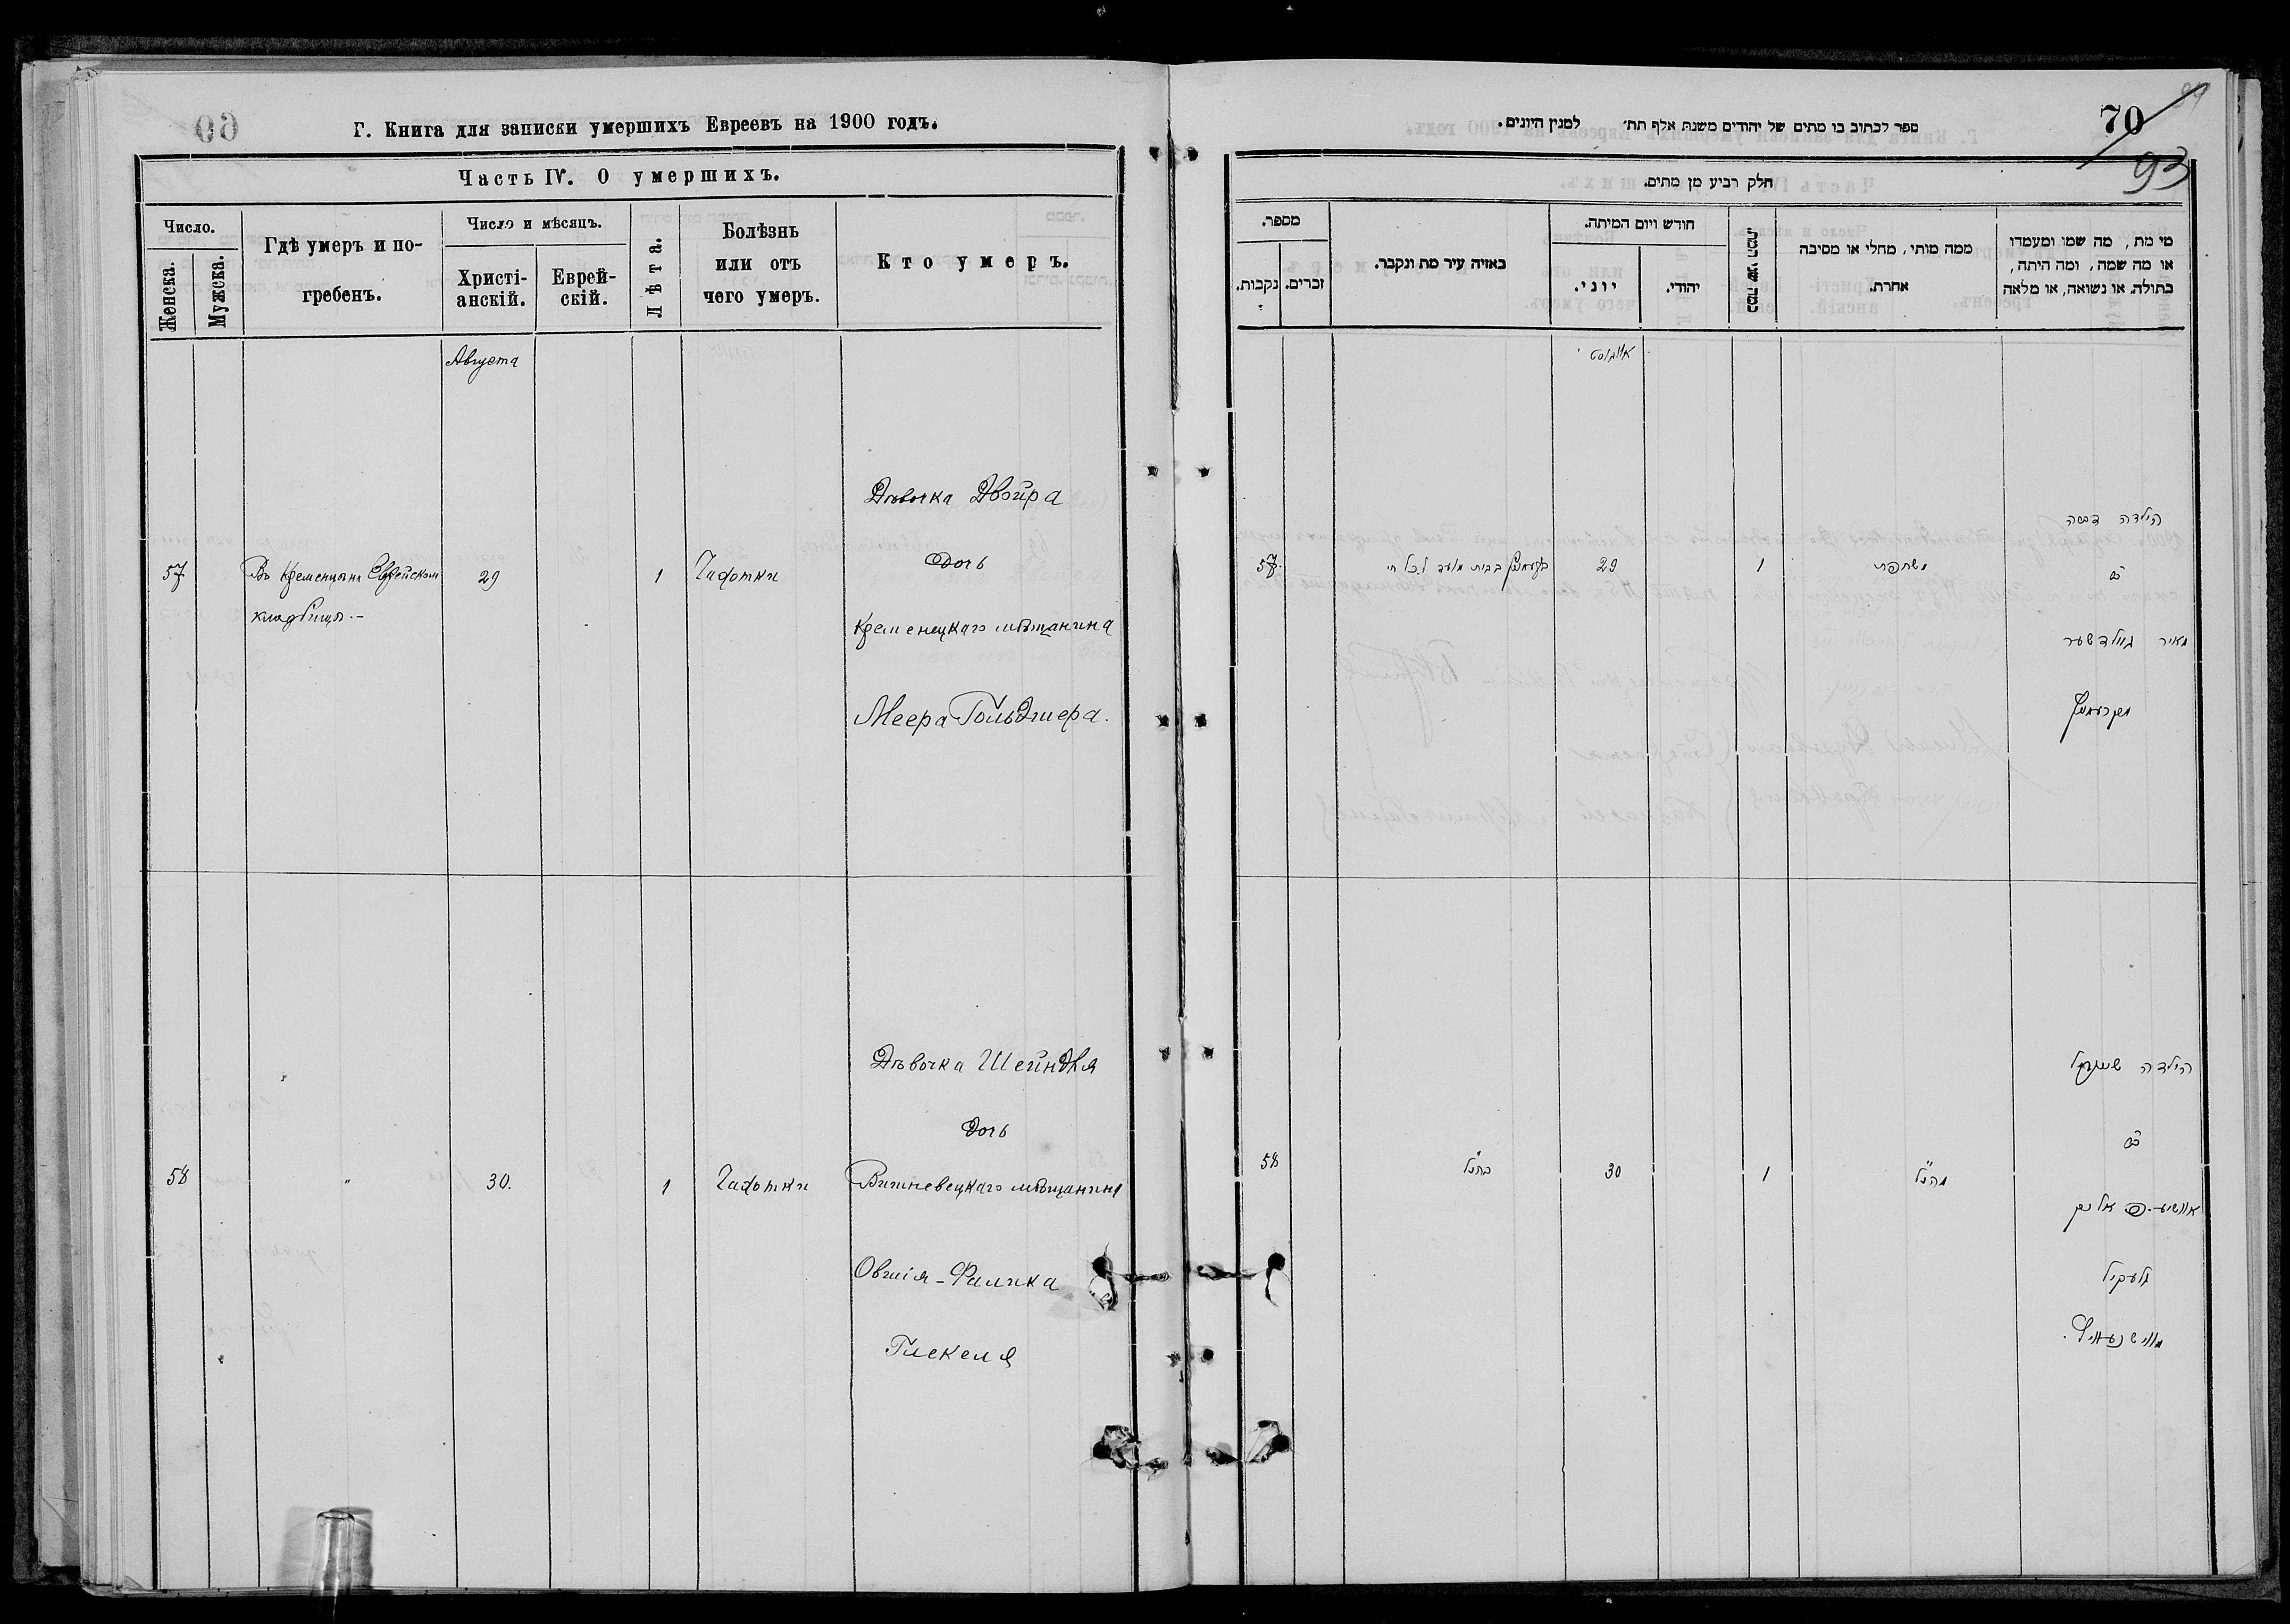 Г. Книга для записки умершихъ Евреевъ на 1900 годъ.
Часть IV. О умершихъ.
Число.
Женска.
Мужска.
Гдѣ умеръ и по-
гребенъ.
Число и мѣсяцъ.
Христі-
анскій.
Еврей-
скій.
Лѣта.
Болѣзнь
или отъ
чего умеръ.
Кто умеръ.
Августа
57
Въ Кременцѣ на Еврейском
кладбище.-
29
1
Чахотки
Дѣвочка Двойра
дочь
Кременецкаго мѣщанина
Меера Гольдшера.
58
"
30.
1
Чахотки
Дѣвочка Шейндля
дочь
Вишневецкаго мѣщанина
Овшія-Фалика
Глекеля
70
93
ספר לכתוב בו מתים של יהודים משנת אלף תת׳ למנין היונים.
חלק רביע מן מתים.
מספר.
נקבות.
זכרים.
באזיה עיר מת ונקבר.
חודש ויום המיתה.
יוני.
יהודי.
כמה שני המת.
ממה מותי, מחלי או מסיבה
אחרת.
מי מת, מה שמו ומעמדו
או מה שמה, ומה היתה,
בתולה, או נשואה, או מלאה
אויגוסט
57.
בקרעמניץ בבית מועד לכל חי
29
1
משחפת
הילדה
בת
מאיר גוילדשער
מקרעמניץ
58
כהנ"ל
30
1
מהנ"ל
הילדה שיינדיל
בת
אוושיע-
גלעקיל